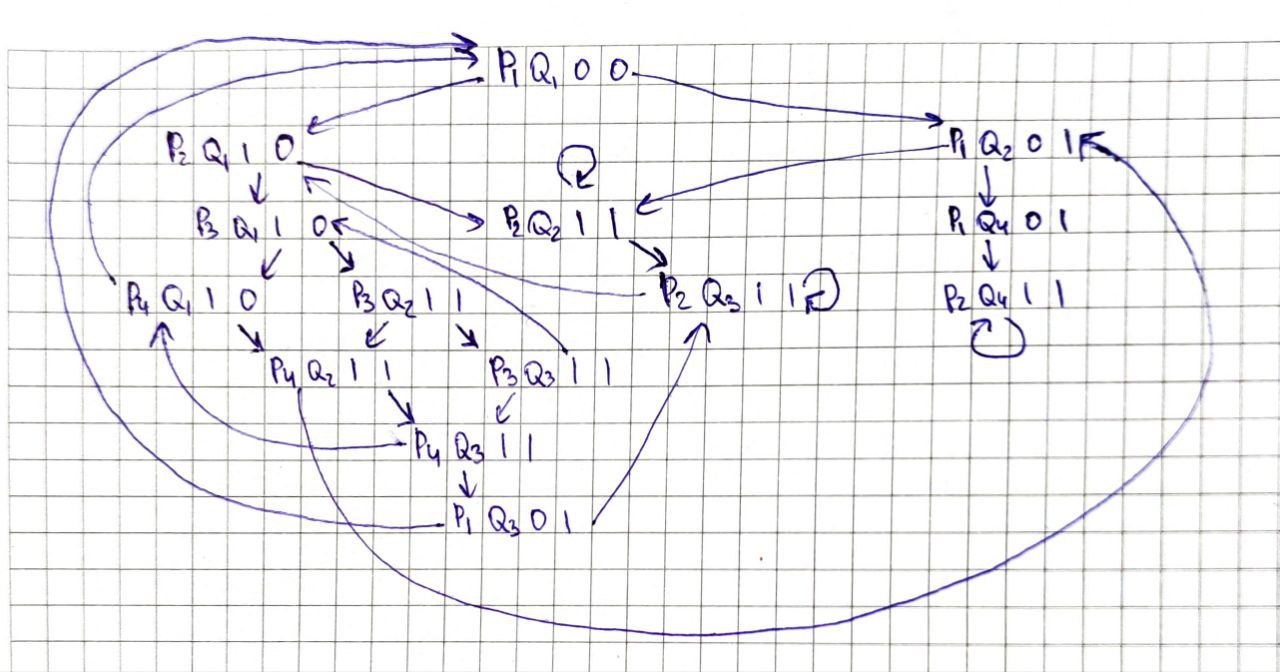 P1 Q1 0 0
P2 Q1 1 0
P1 Q2 0 1
P3 Q1 1 0
P2 Q2 1 1
P1 Q4 0 1
P4 Q1 1 0
P3 Q2 1 1
P2 Q3 1 1
P2 Q4 1 1
P4 Q2 1 1
P3 Q3 1 1
P4 Q3 1 1
P1 Q3 0 1